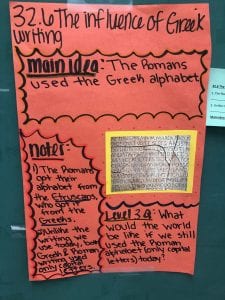 32.6 The influence of Greek
writing
main idea: The Romans
used the Greek alphabet
notes-
1) The Romans
got their
alphabet from
the Etruscans,
who got it
from the
Greeks.
use today, both
Greek & Roman
writing used
only capital
letters.
Level 3 Q: What
would the world
be like if we still
used the Roman
alphabet (only capital
letters) today?